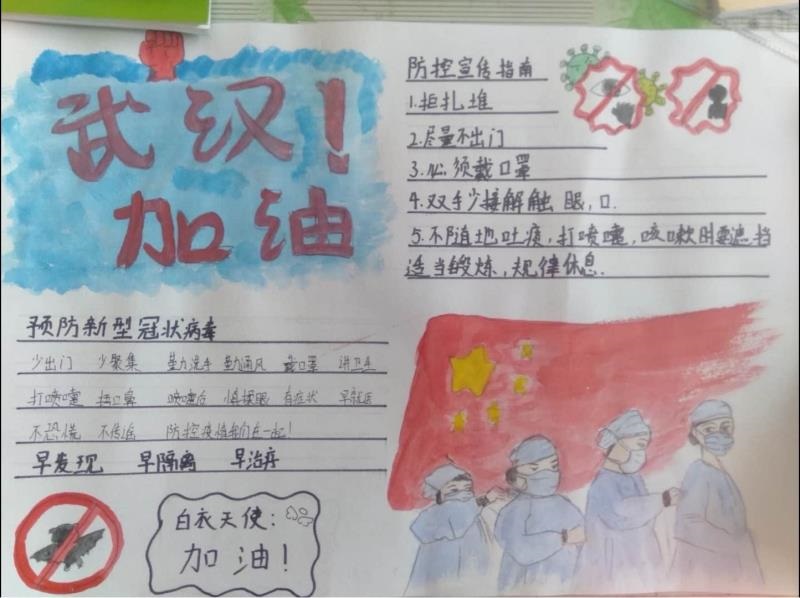 武汉!
加油
防控宣传指南
1.拒扎堆
2.尽量不出门
3.必须戴口罩
4.双手少接解触眼,口.
5.不随地吐痰,打喷嚏,咳嗽时要遮挡
适当锻炼,规律休息.
预防新型冠状病毒
少出门 少聚集 勤洗手 勤通风 戴口罩 讲卫生
打喷嚏 捂口鼻 咳嚏后 慎揉眼 有症状 早就医
不恐慌 不传谣 防控疫情我们在一起!
早发现 早隔离 早治疗
白衣天使:
加油!